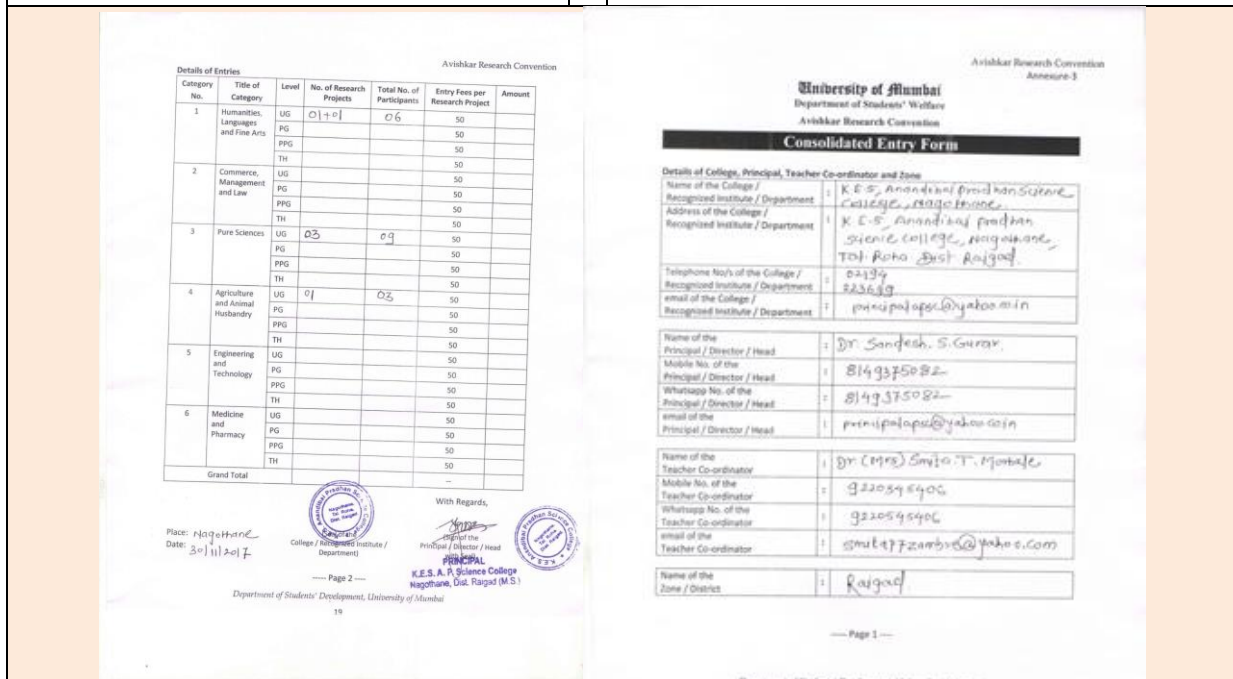 Avishkar Research Convention
Details of Entries
Category No. Title of Category Level No. of Research Projects Total No. of Participants Entry Fees per Research Project Amount
1 Humanities, Languages and Fine Arts UG 01+01 06 50
PG 50
PPG 50
TH 50
2 Commerce, Management and Law UG 50
PG 50
PPG 50
TH 50
3 Pure Sciences UG 03 09 50
PG 50
PPG 50
TH 50
4 Agriculture and Animal Husbandry UG 01 03 50
PG 50
PPG 50
TH 50
5 Engineering and Technology UG 50
PG 50
PPG 50
TH 50
6 Medicine and Pharmacy UG 50
PG 50
PPG 50
TH 50
Grand Total --
With Regards,
Place: Nagothane
Date: 30/11/2017
College / Recognized Institute / Department)
(Sign of the
Principal / Director / Head
PRINCIPAL
K.E.S. A. P. Science College
Nagothane, Dist. Raigad (M.S.)
---- Page 2 ----
Department of Students' Development, University of Mumbai
19
Avishkar Research Convention
Annexure-3
University of Mumbai
Department of Students' Welfare
Avishkar Research Convention
Consolidated Entry Form
Details of College, Principal, Teacher Co-ordinator and Zone
Name of the College / Recognized Institute / Department : K.E.S, Anandibai Pradhan Science
College, Nagothane.
Address of the College / Recognized Institute / Department : K.E.S, Anandibai Pradhan
Science College, Nagothane,
Tal. Roha Dist Raigad.
Telephone No/s of the College / Recognized Institute / Department : 02194
email of the College / Recognized Institute / Department : principalapsc@yahoo.co.in
Name of the Principal / Director / Head : Dr. Sandesh. S. Gurav.
Mobile No. of the Principal / Director / Head : 8149375082
Whatsapp No. of the Principal / Director / Head : 8149375082
email of the Principal / Director / Head : principalapsc@yahoo.co.in
Name of the Teacher Co-ordinator : Dr (Mrs) Smita. T.
Mobile No. of the Teacher Co-ordinator :
Whatsapp No. of the Teacher Co-ordinator :
email of the Teacher Co-ordinator :
Name of the Zone / District : Raigad
---- Page 1 ----